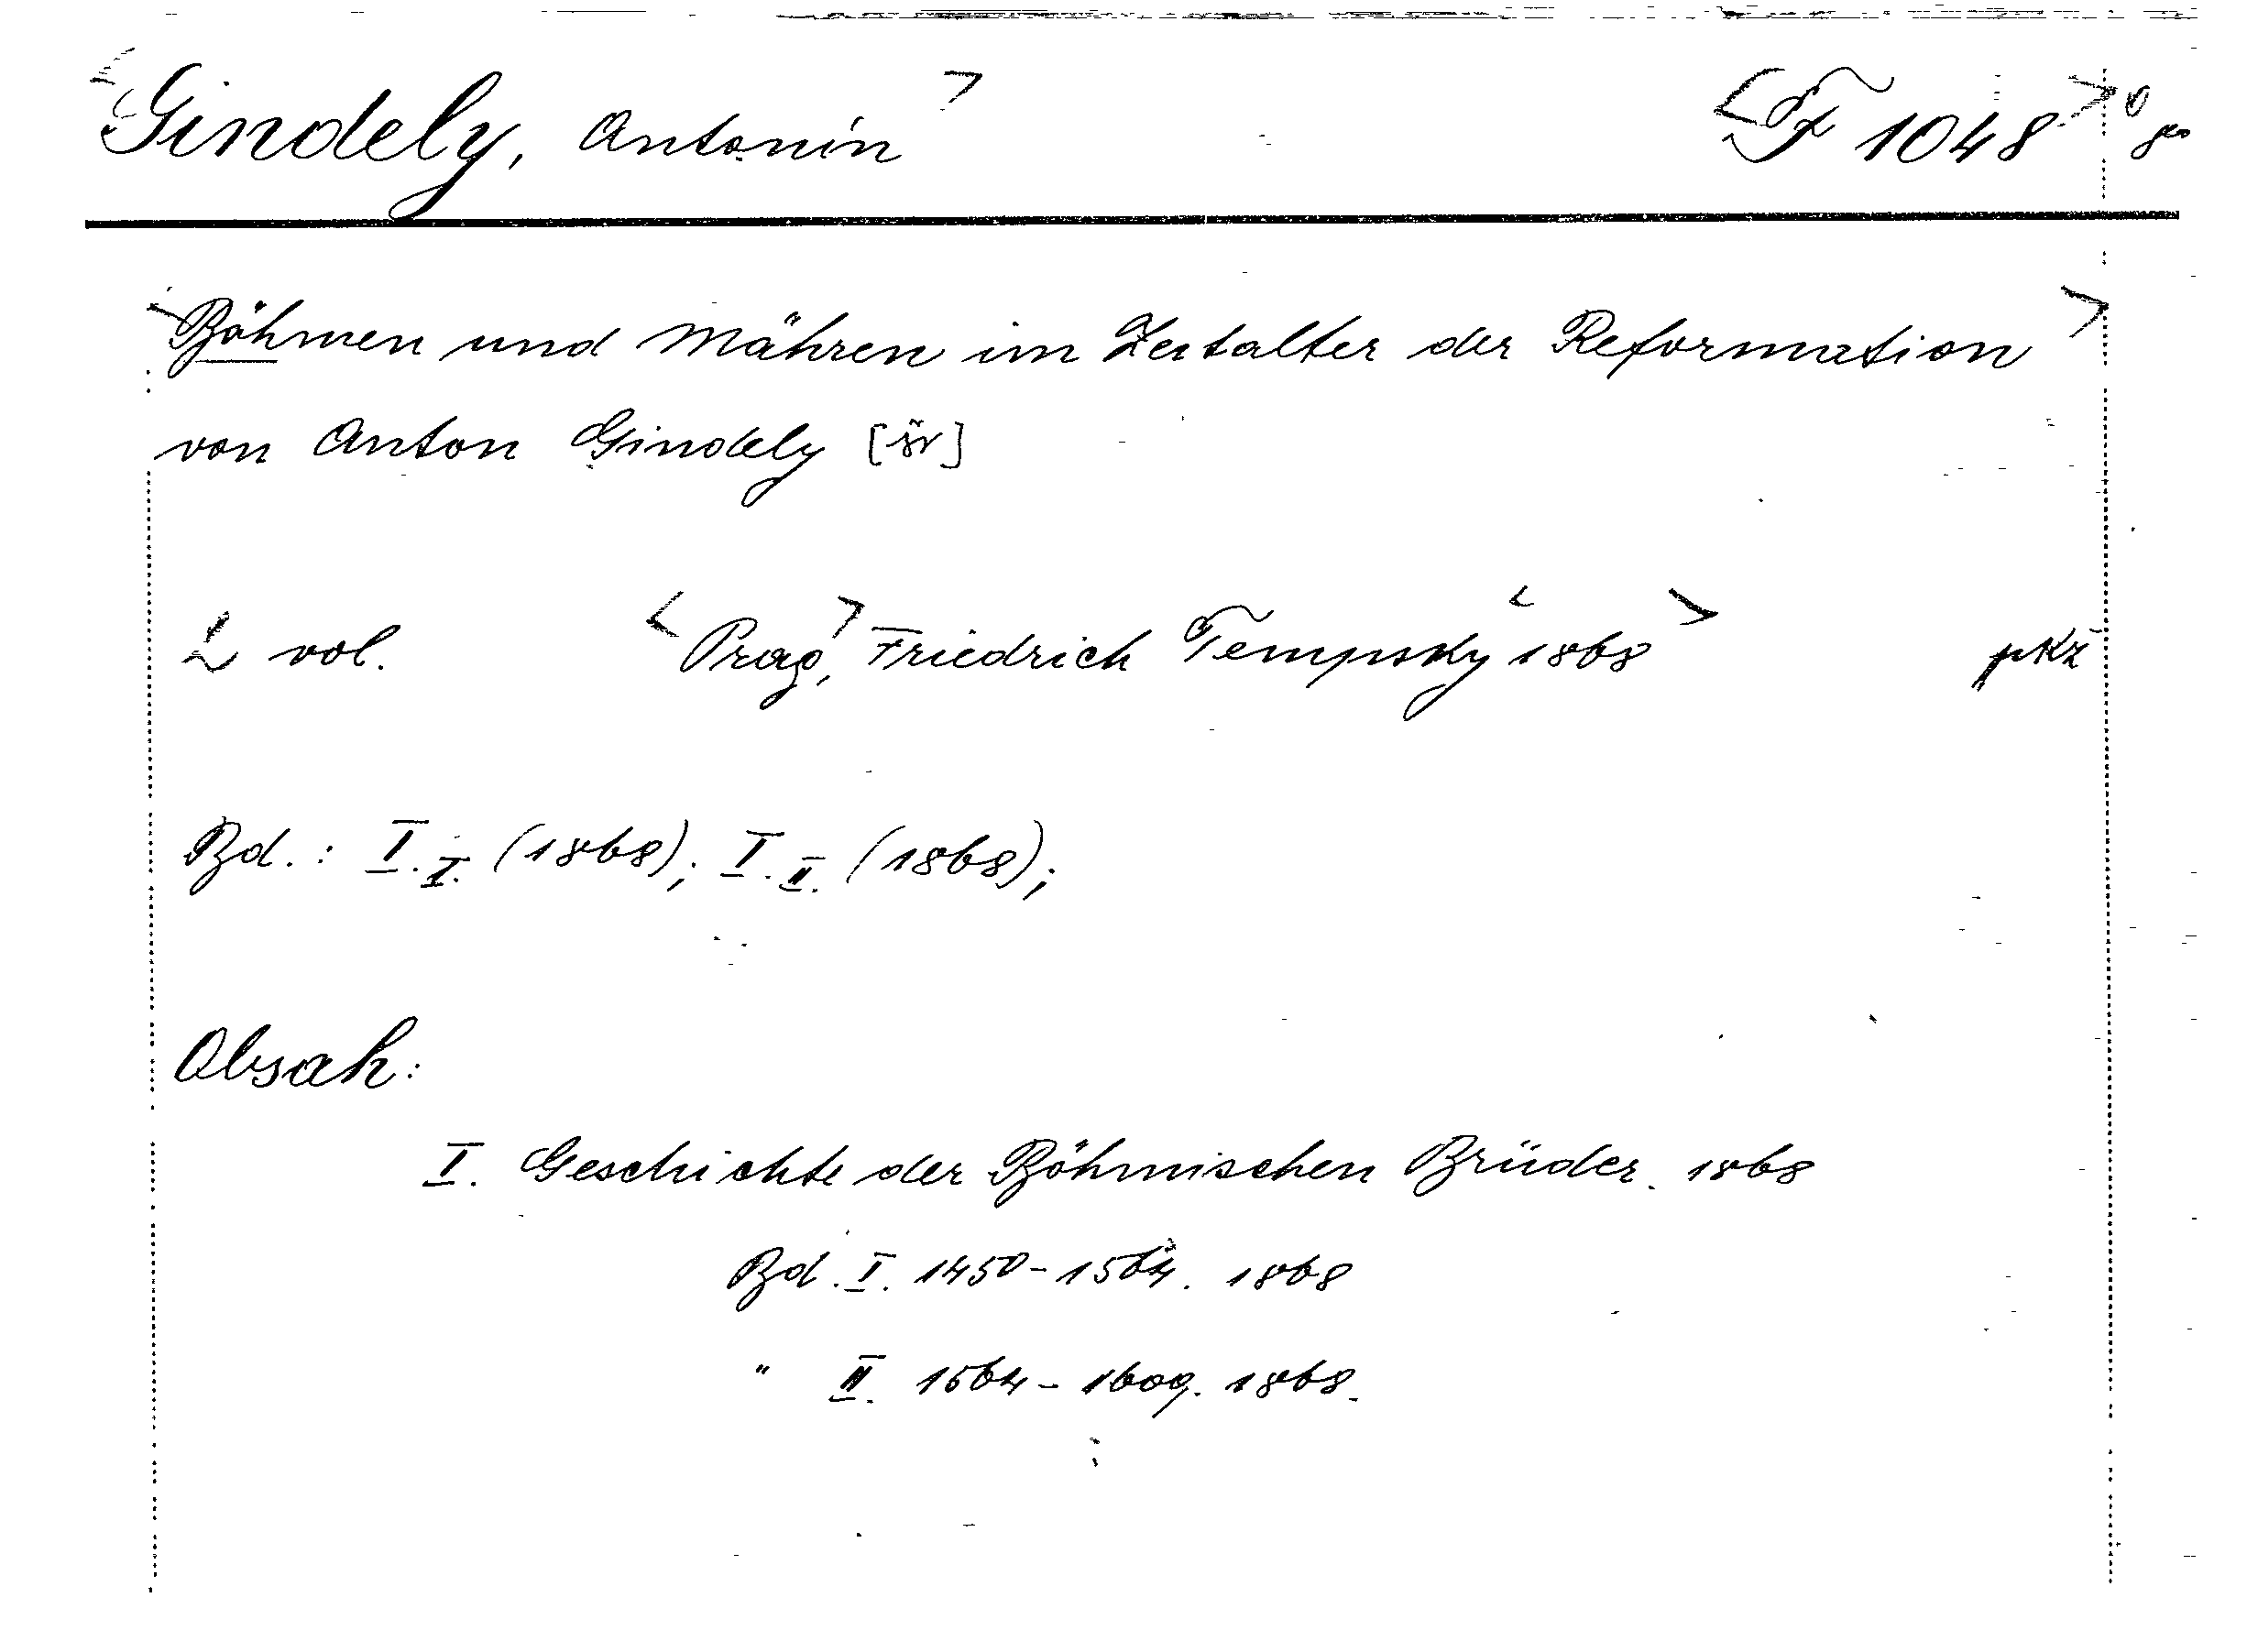 <Gindely, Antonín> <F 1048>
<Böhmen und Mähren im Zeitalter der Reformation>
von Anton Gindely [šv]
2 vol. <Prag,> Friedrich Tempsky <1868>
Bd.: I.I. (1868); I.II. (1868);
Obsah:
I. Geschichte der Böhmischen Brüder. 1868
Bd. I. 1450-1564. 1868
" II. 1564-1609. 1868.